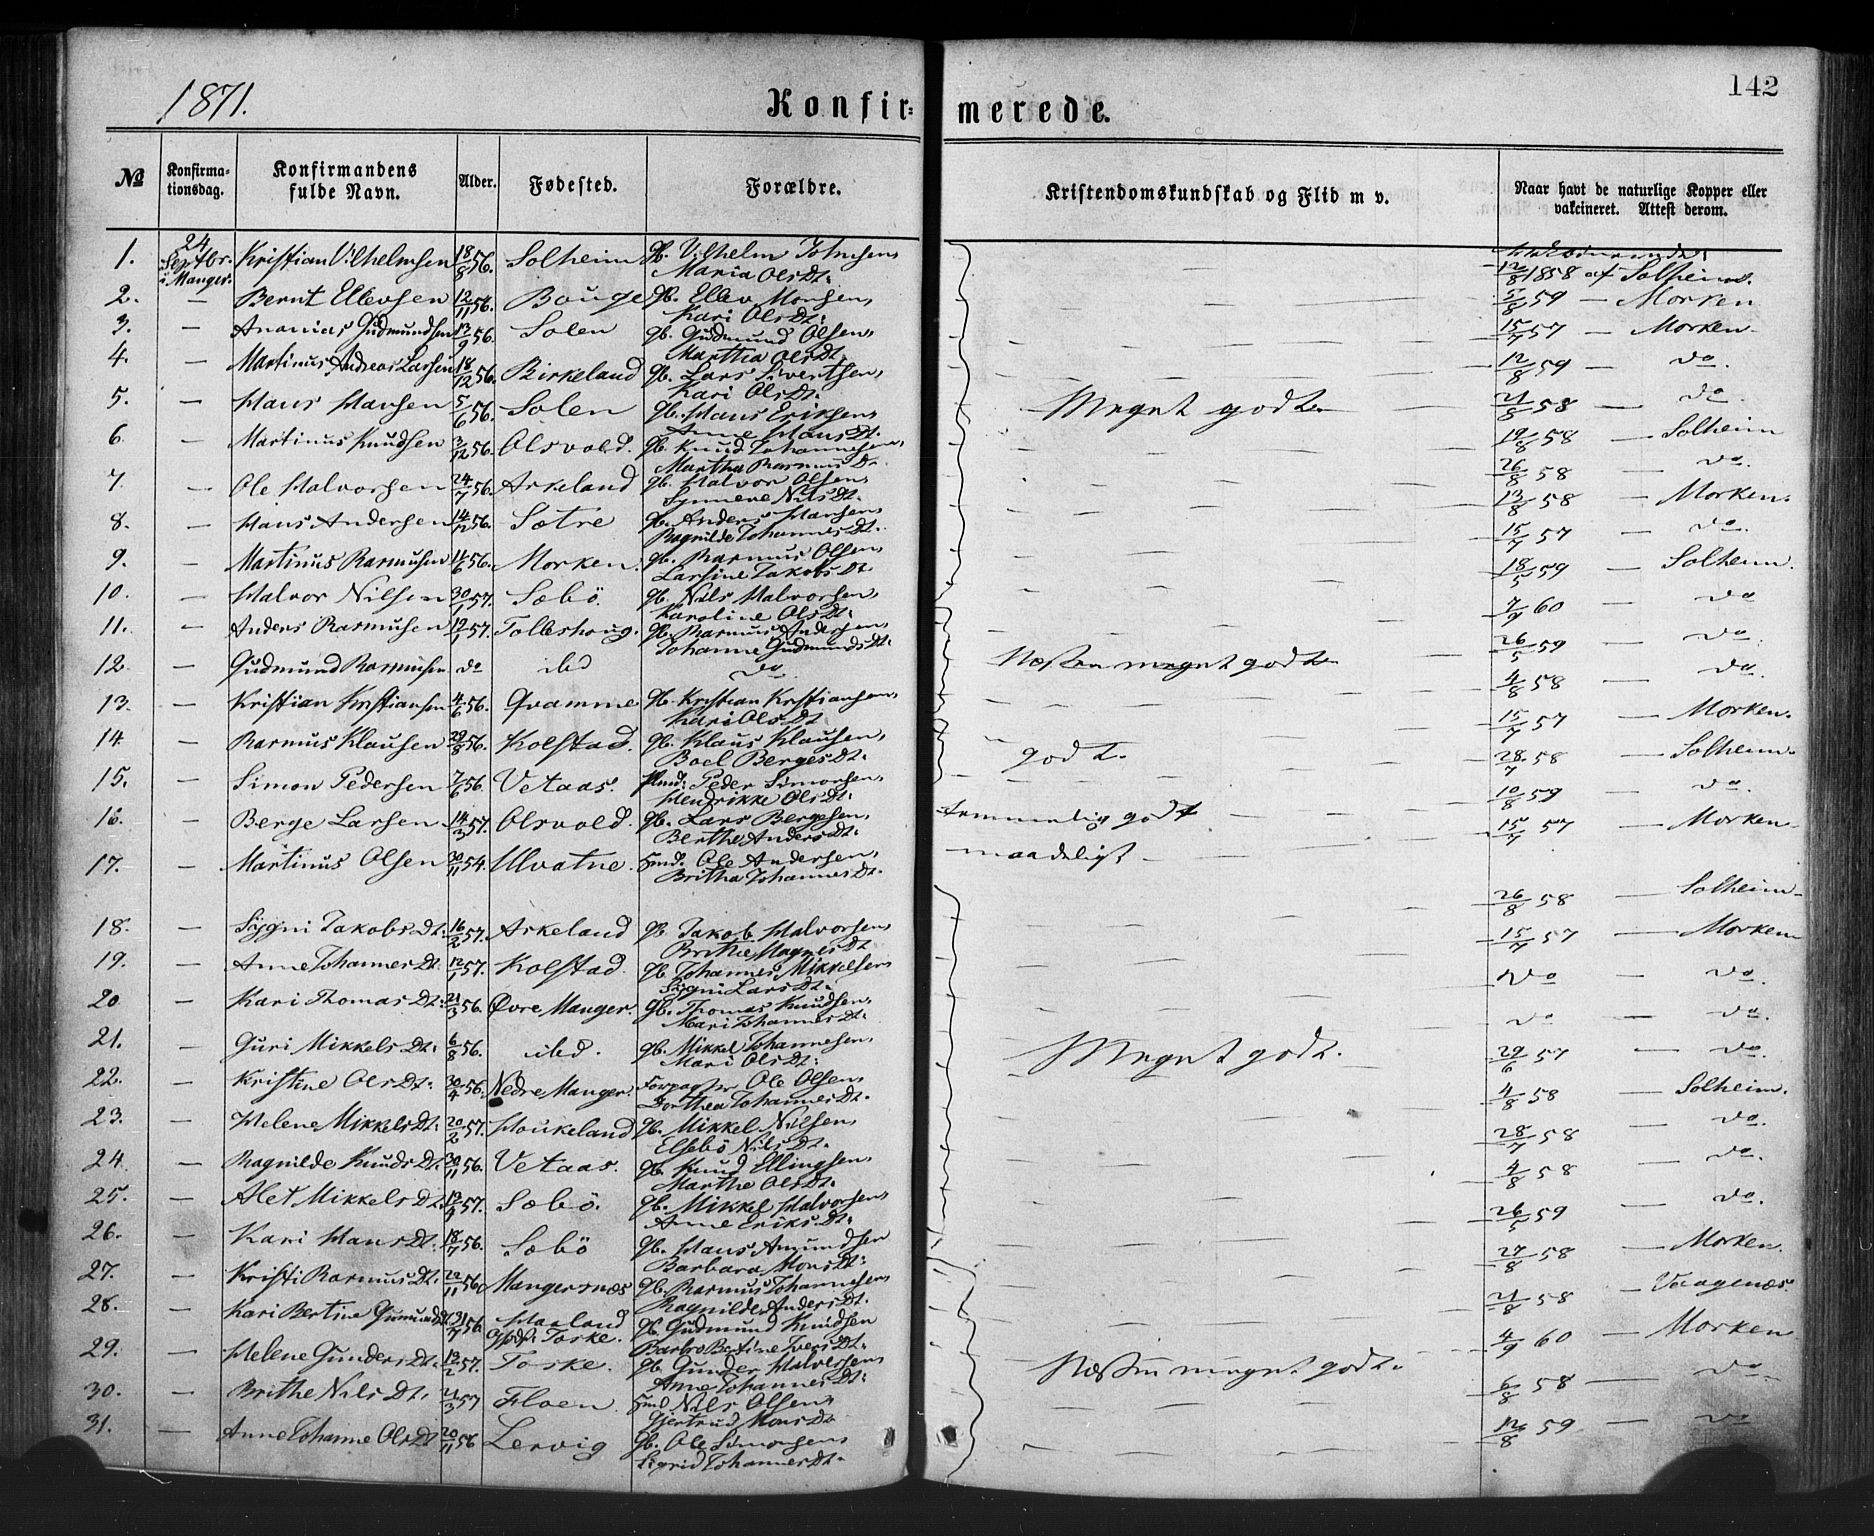 1871.
Konfir=merede.
142
No
Konfirma-tionsdag.
Konfirmandens fulde Navn.
Alder.
Fødested.
Forældre.
Kristendomskundskab og Flid m v.
Naar havt de naturlige Kopper eller vakcineret. Attest derom.
1. 24 Septbr. i Manger. Kristian Vilhelmsen 18/8 56. Solheim gb. Vilhelm Johnesen, Maria OlsDt: 12/8 1858 af Solheim.
2. — Bernt Ellevsen 12/11 56. Bouge gb. Ellev Monsen, Kari OlsDt: 5/8 59 — Morken
3. — Ananias Gudmundsen 13/9 56. Solen gb. Gudmund Olsen, Martha OlsDt. 15/7 57 — Morken
4. — Martinus Andreas Larsen 18/12 56. Birkeland gb. Lars Sivertsen, Kari OlsDt: 12/8 59 — do
5. — Hans Hansen 5/6 56. Solen gb. Hans Eriksen, Anne HansDt. Meget godt. 21/8 58 — do.
6. — Martinus Knudsen 3/12 56. Olsvold. gb. Knud Johannesen, Martha RasmusDt. 19/8 58 — Solheim
7. — Ole Halvorsen 24/7 56. Askeland gb. Halvor Olsen, Synneve NilsDt. 26/8 58 — do.
8. — Hans Andersen 14/12 56. Sætre gb. Anders Hansen, Ragnilde JohannesDt. 13/8 58 — Morken.
9. — Martinus Rasmusen 14/6 56. Morken. gb. Rasmus Olsen, Larsine JakobsDt. 15/7 57 — do.
10. — Halvor Nilsen 30/1 57. Sæbö. gb. Nils Halvorsen, Karoline OlsDt: 18/5 59 — Solheim.
11. — Anders Rasmusen 12/1 57. Tolleshoug. gb. Rasmus Andersen, Johanne GudmundsDt: 7/9 60 — do
12. — Gudmund Rasmusen do ibd do Næsten meget godt 26/5 59 — do.
13. — Kristian Kristiansen 4/6 56. Qvamme gb. Kristian Kristiansen, Kari OlsDt 4/8 58 — do.
14. — Rasmus Klausen 29/8 56. Kolstad. gb. Klaus Klausen, Boel BergesDt: godt. 15/7 57 — Morken.
15. — Simon Pedersen 7/6 56. Vetaas. Hmd: Peder Simonsen, Hendrikke OlsDt: 28/7 58 — Solheim.
16. — Berge Larsen 14/3 57. Olsvold. gb. Lars Bergesen, Berthe AndersDt: temmelig godt 10/8 59 — do.
17. — Martinus Olsen 30/11 54. Ulvatne. Hmd. Ole Andersen, Britha JohannesDt. maadeligt 15/7 57 — Morken
18. — Sygni JakobsDt. 16/2 57. Askeland gb. Jakob Halvorsen, Brithe MagnesDt 26/8 58 — Solheim
19. — Anne JohannesDt. 12/1 57. Kolstad. gb. Johannes Mikkelsen Sygni LarsDt. 15/7 57 — Morken
20. — Kari ThomasDt: 21/3 56. Øvre Manger. gb. Thomas Knudsen, Mari JohannesDt: do — do.
21. — Guri MikkelsDt: 6/8 56. ibd. gb. Mikkel Johannesen, Mari OlsDt: Meget godt. do — do.
22. — Kristine OlsDt: 30/4 56. Nedre Manger. Forpagter Ole Olsen, Dorthea JohannesDt. 29/6 57 — do.
23. — Helene MikkelsDt: 20/2 57. Houkeland gb. Mikkel Nilsen, Elsebö NilsDt. 4/8 58 — Solheim.
24. — Ragnilde KnudsDt. 30/11 56. Vetaas. gb. Knud Ellingsen, Marthe OlsDt: 28/7 58 — do.
25. — Alet MikkelsDt. 13/4 57. Sæbö. gb. Mikkel Halvorsen, Anne EriksDt: 4/8 58 — do.
26. — Kari HansDt. 18/7 56. Sæbö gb. Hans Amundsen Barbara MonsDt: 26/5 59 — do.
27. — Kristi RasmusDt. 22/11 56 Mangersnæs gb. Rasmus Johannesen Ragnilde AndersDt. 27/8 58 — Morken.
28. — Kari Bertine 31/7 56. Haaland Toske. gb. Gudmund Knudsen Barbro Bertine IversDt: 21/8 58 — Vaagenæs.
29. — Helene GundersDt. 13/2 57. Toske. gb. Gunder Halvorsen, Anne JohannesDt: Næsten meget godt. 4/9 60 — Morken
30. — Brithe NilsDt. 21/3 57 Floen. Hmd Nils Olsen, Gjertrud MonsDt. 6/8 58 — do.
31. — Anne Johanne OlsDt 20/11 56 Lervig gb. Ole Simonsen, Sigrid JohannesDt. 12/8 59 — do